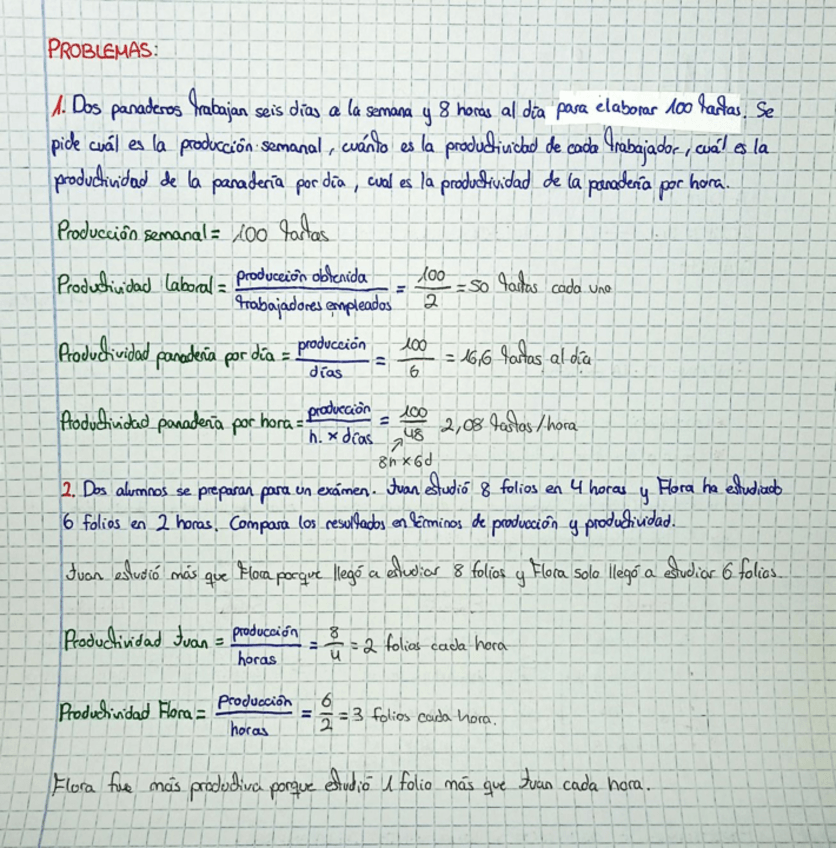 PROBLEMAS:
1. Dos panaderos trabajan seis días a la semana y 8 horas al día para elaborar 100 tartas. Se
pide cuál es la producción semanal, cuánto es la productividad de cada trabajador, cuál es la
productividad de la panadería por día, cual es la productividad de la panadería por hora.
Producción semanal = 100 tartas
Productividad laboral = producción obtenida / trabajadores empleados = 100 / 2 = 50 tartas cada uno
Productividad panadería por día = producción / días = 100 / 6 = 16,6 tartas al día
Productividad panadería por hora = producción / h. × días = 100 / 48 2,08 tartas/hora
8h × 6d
2. Dos alumnos se preparan para un exámen. Juan estudió 8 folios en 4 horas y Flora ha estudiado
6 folios en 2 horas. Compara los resultados en términos de producción y productividad.
Juan estudió más que Flora porque llegó a estudiar 8 folios y Flora solo llegó a estudiar 6 folios.
Productividad Juan = producción / horas = 8 / 4 = 2 folios cada hora
Productividad Flora = Producción / horas = 6 / 2 = 3 folios cada hora.
Flora fue más productiva porque estudió 1 folio más que Juan cada hora.